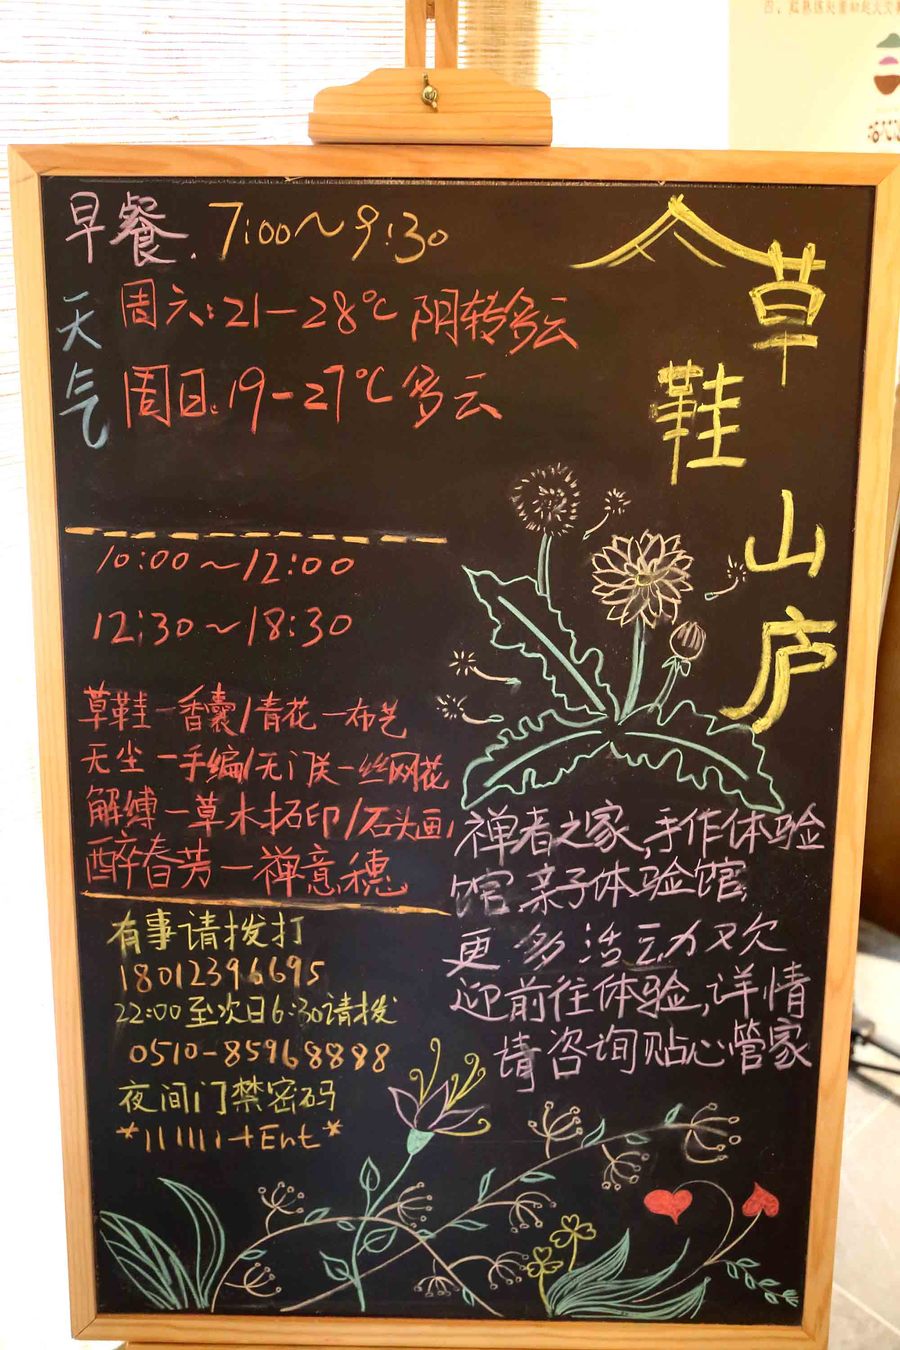 早餐. 7:00～9:30
天气
周六:21-28℃ 阴转多云
周日:19-27℃ 多云
草鞋山庐
10:00～12:00
12:30～18:30
草鞋-香囊/青花-布艺
无尘-手编/无门关-丝网花
解缚-草木拓印/石头画,
醉春芳-禅意穗
禅者之家,手作体验
馆,亲子体验馆,
更多活动欢
迎前往体验,详情
请咨询贴心管家
有事请拨打
18012396695
22:00至次日6:30请拨
0510-85968888
夜间门禁密码
*111111+Ent*